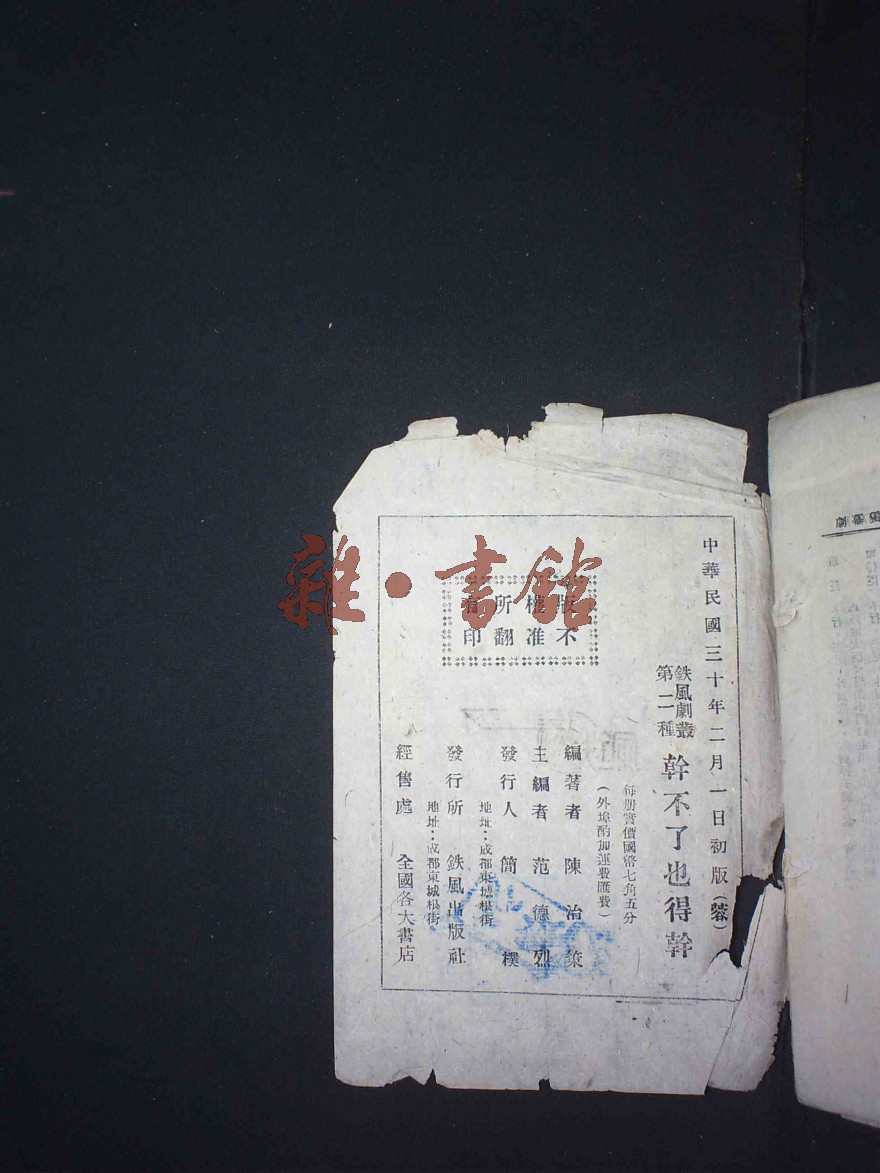 中華民國三十年二月一日初版(蓉)
鉄風劇叢
第二種
幹不了也得幹
每册實價國幣七角五分
(外埠酌加運費匯費)
編著者 陳治策
主編者 范德烈
發行人 簡樸
地址：成都東城根街
發行所 鉄風出版社
地址：成都東城根街
經售處 全國各大書店
版權所有
不准翻印
雜·書館